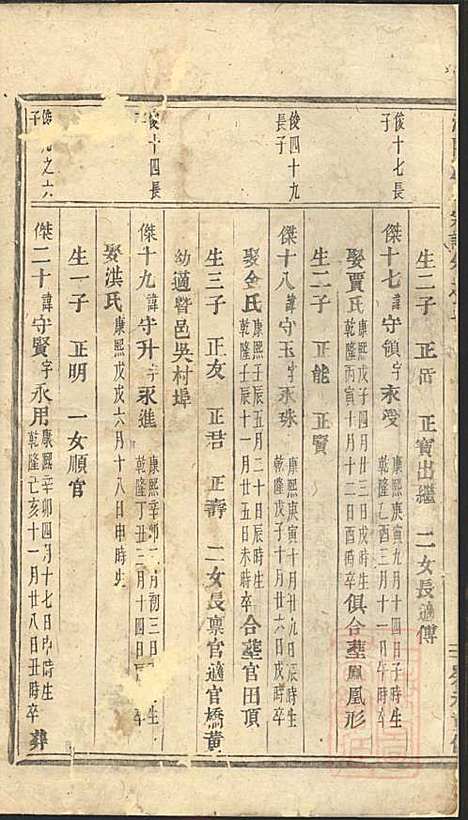 生二子 正岳 正寶出繼 二女長適傅
俊十七長子
傑十七諱守領字永受 康熙庚寅九月十四日子時生 乾隆乙酉三月十一日午時卒
娶賈氏 康熙戊子四月廿三日戌時生 乾隆丙寅十月十一日酉時卒 俱合塟鳳凰形
生二子 正能 正賢
俊四十九長子
傑十八諱守玉字永珠 康熙庚寅十月廿九日辰時生 乾隆戊戌十月廿六日戌時卒
娶金氏 康熙壬辰五月二十日辰時生 乾隆壬辰十一月廿五日未時卒 合塟官田頂
生三子 正友 正君 正壽 二女長禀官適官橋黄
幼適暨邑吳村埠
俊十四長子
傑十九諱守升字永進 康熙辛卯二月初三日 生 乾隆丁丑三月十四日辰 卒
娶洪氏 康熙戊戌六月十八日申時生
生一子 正明 一女順官
之六子
傑二十諱守賢字永用 康熙辛卯四月十七日 時生 乾隆乙亥十一月廿八日丑時卒 葬